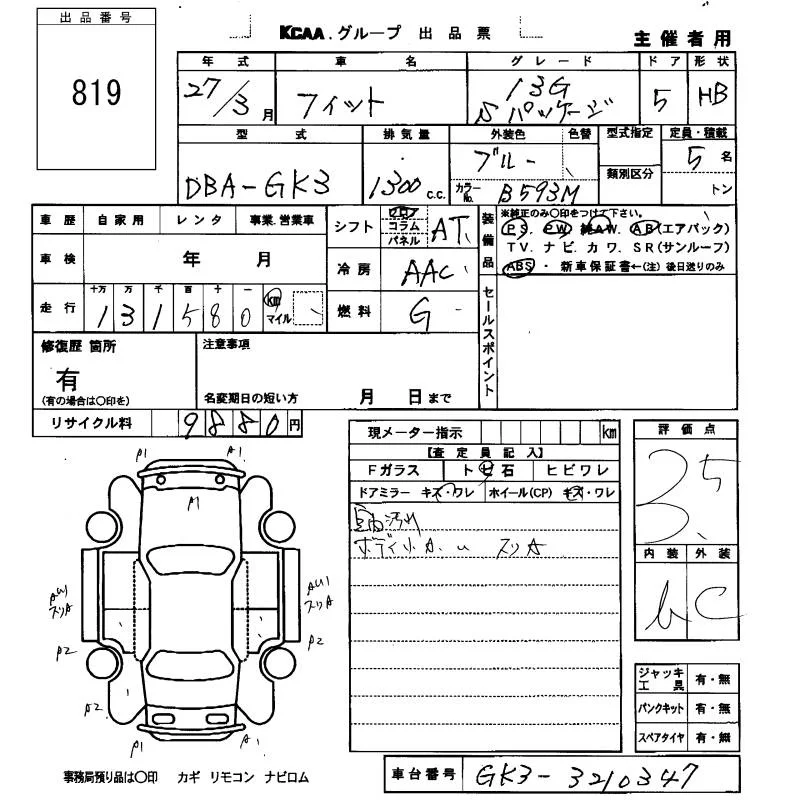 出品番号
819
KCAA.グループ 出品票
主催者用
年式 車名 グレード ドア 形状
27/3月 フィット 13G Sパッケージ 5 HB
型式 排気量 外装色 色替 型式指定 定員・積載
DBA-GK3 1300 C.C. ブルー 類別区分 5名
カラーNo. B593M トン
車歴 自家用 レンタ 事業.営業車
シフト フロア コラム パネル AT
装備品
※純正のみ〇印をつけて下さい。
PS. PW. 純AW. AB(エアバック)
TV. ナビ. カワ. SR(サンルーフ)
ABS ・ 新車保証書←(注)後日送りのみ
車検 年 月
冷房 AAC
走行 十万 万 千 百 十 一
1 3 1 5 8 0 km マイル
燃料 G
セールスポイント
修復歴 箇所
有
(有の場合は〇印を)
注意事項
名変期日の短い方 月 日まで
リサイクル料 9 8 8 0 円
現メーター指示 km
【査定員記入】
Fガラス ト ビ 石 ヒビワレ
ドアミラー キズ・ワレ ホイール(CP) キズ・ワレ
室内汚れ
ボディ小A.u スリA
評価点
3.5
内装 外装
b C
P1 A1
A1
AU1
スリA
P2
A2
P1 A1
AU1
スリA
P2
ジャッキ工具 有・無
パンクキット 有・無
スペアタイヤ 有・無
事務局預り品は〇印 カギ リモコン ナビロム
車台番号 GK3-3210347